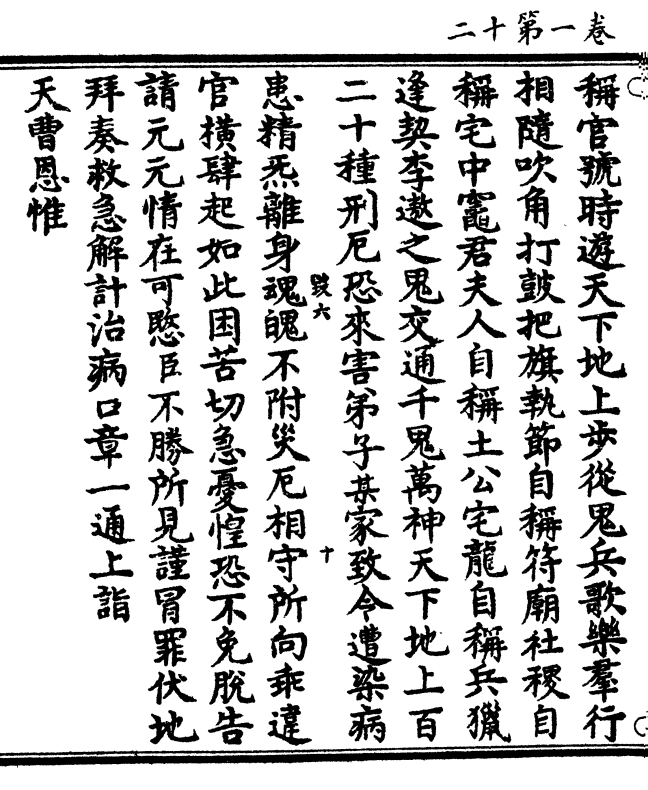 二十第一卷
稱官號時遊天下地上步從鬼兵歌樂羣行
相隨吹角打鼓把旗執節自稱符廟社稷自
稱宅中竈君夫人自稱土公宅龍自稱兵獵
逢契李遨之鬼交通千鬼萬神天下地上百
二十種刑厄恐來害弟子某家致令遭染病
毀六
十
患精炁離身魂魄不附災厄相守所向乖違
官橫肆起如此困苦切急憂惶恐不免脫告
請元元情在可愍臣不勝所見謹冒罪伏地
拜奏救急解計治病口章一通上詣
天曹恩惟